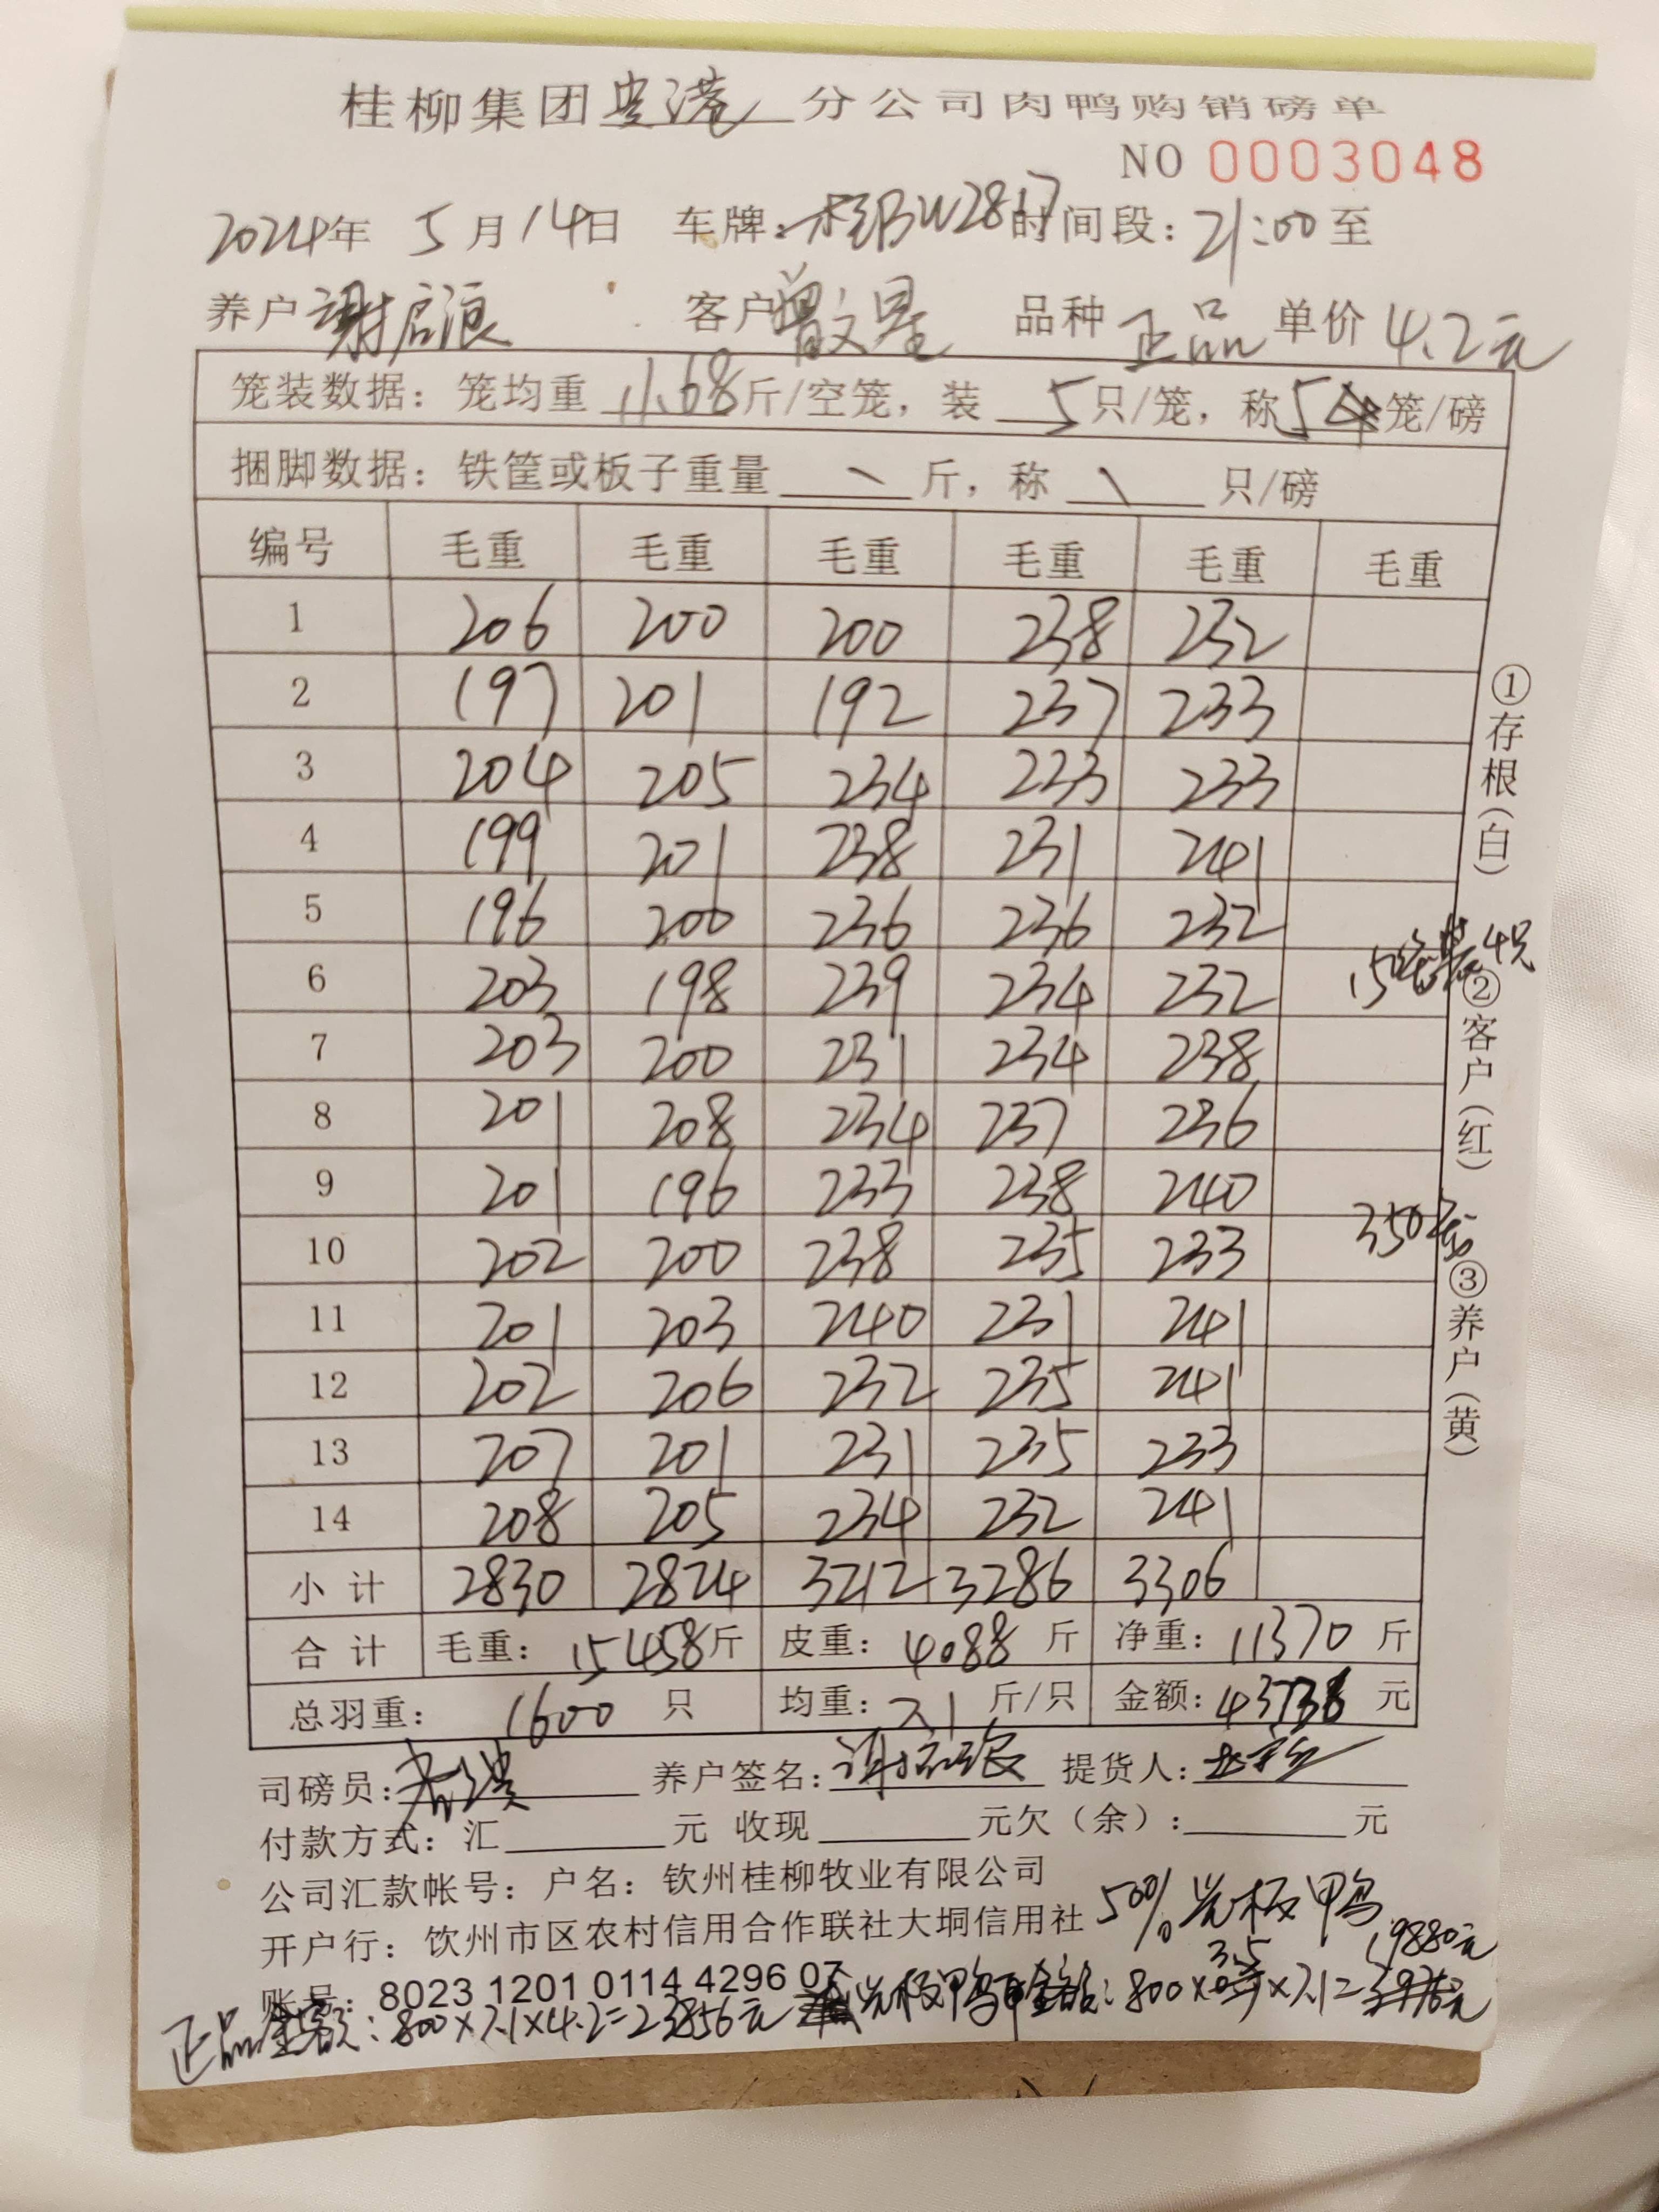 桂柳集团贵港分公司肉鸭购销磅单
NO 0003048
2024年 5月14日 车牌:桂BW2817 时间段:21:00至
养户 谢启浪 客户 曾文星 品种 正品 单价 4.2元
笼装数据:笼均重 11.68斤/空笼,装 5只/笼,称5笼/磅
捆脚数据:铁筐或板子重量 \ 斤,称 \ 只/磅
编号 毛重 毛重 毛重 毛重 毛重 毛重
1 206 200 200 238 232
2 197 201 192 237 233
3 204 205 234 233 233
4 199 201 238 231 241
5 196 200 236 236 232
6 203 198 239 234 232
7 203 200 231 234 238
8 201 208 234 237 236
9 201 196 233 238 240
10 202 200 238 235 233
11 201 203 240 231 241
12 202 206 232 235 241
13 207 201 231 235 233
14 208 205 234 232 241
小计 2830 2824 3212 3286 3306
合计 毛重:15458斤 皮重:4088斤 净重:11370斤
总羽重:1600只 均重:7.1斤/只 金额:43736元
司磅员: 养户签名:谢启浪 提货人:
付款方式:汇 元 收现 元欠(余): 元
公司汇款帐号:户名:钦州桂柳牧业有限公司
开户行:钦州市区农村信用合作联社大垌信用社
50%光板鸭
账号:8023 1201 0114 4296 07
正品金额:800×7.1×4.2=23856元 光板鸭金额:800×3.5×7.1=19880元
①存根(白) ②客户(红) ③养户(黄)
150笼装4只
350笼